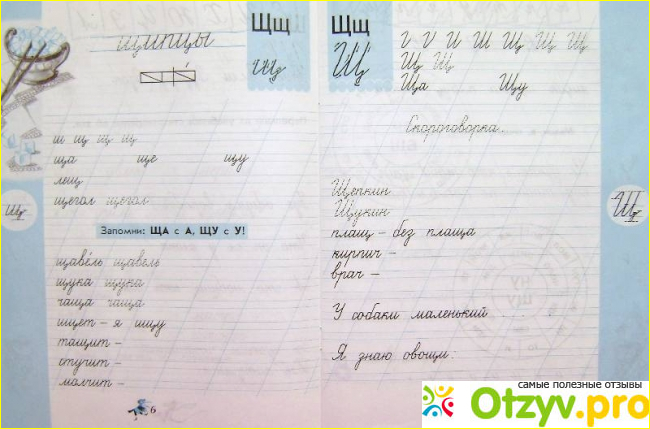 щипцы
Щщ
щ
ш щ щ щ
ща ще щу
лещ
щегол щегол
щ
Запомни: ЩА с А, ЩУ с У!
щаве́ль щавель
щука щука
чаща чаща
ищет – я ищу
тащит –
стучит –
молчит –
6
Щщ
Щ
И Ш Щ Щ Щ
Щ Щ
Ща Щу
Скороговорка.
Щепкин
Щукин
плащ – без плаща
кирпич –
врач –
Щ
У собаки маленький
Я знаю овощи:
самые полезные отзывы
Otzyv.pro